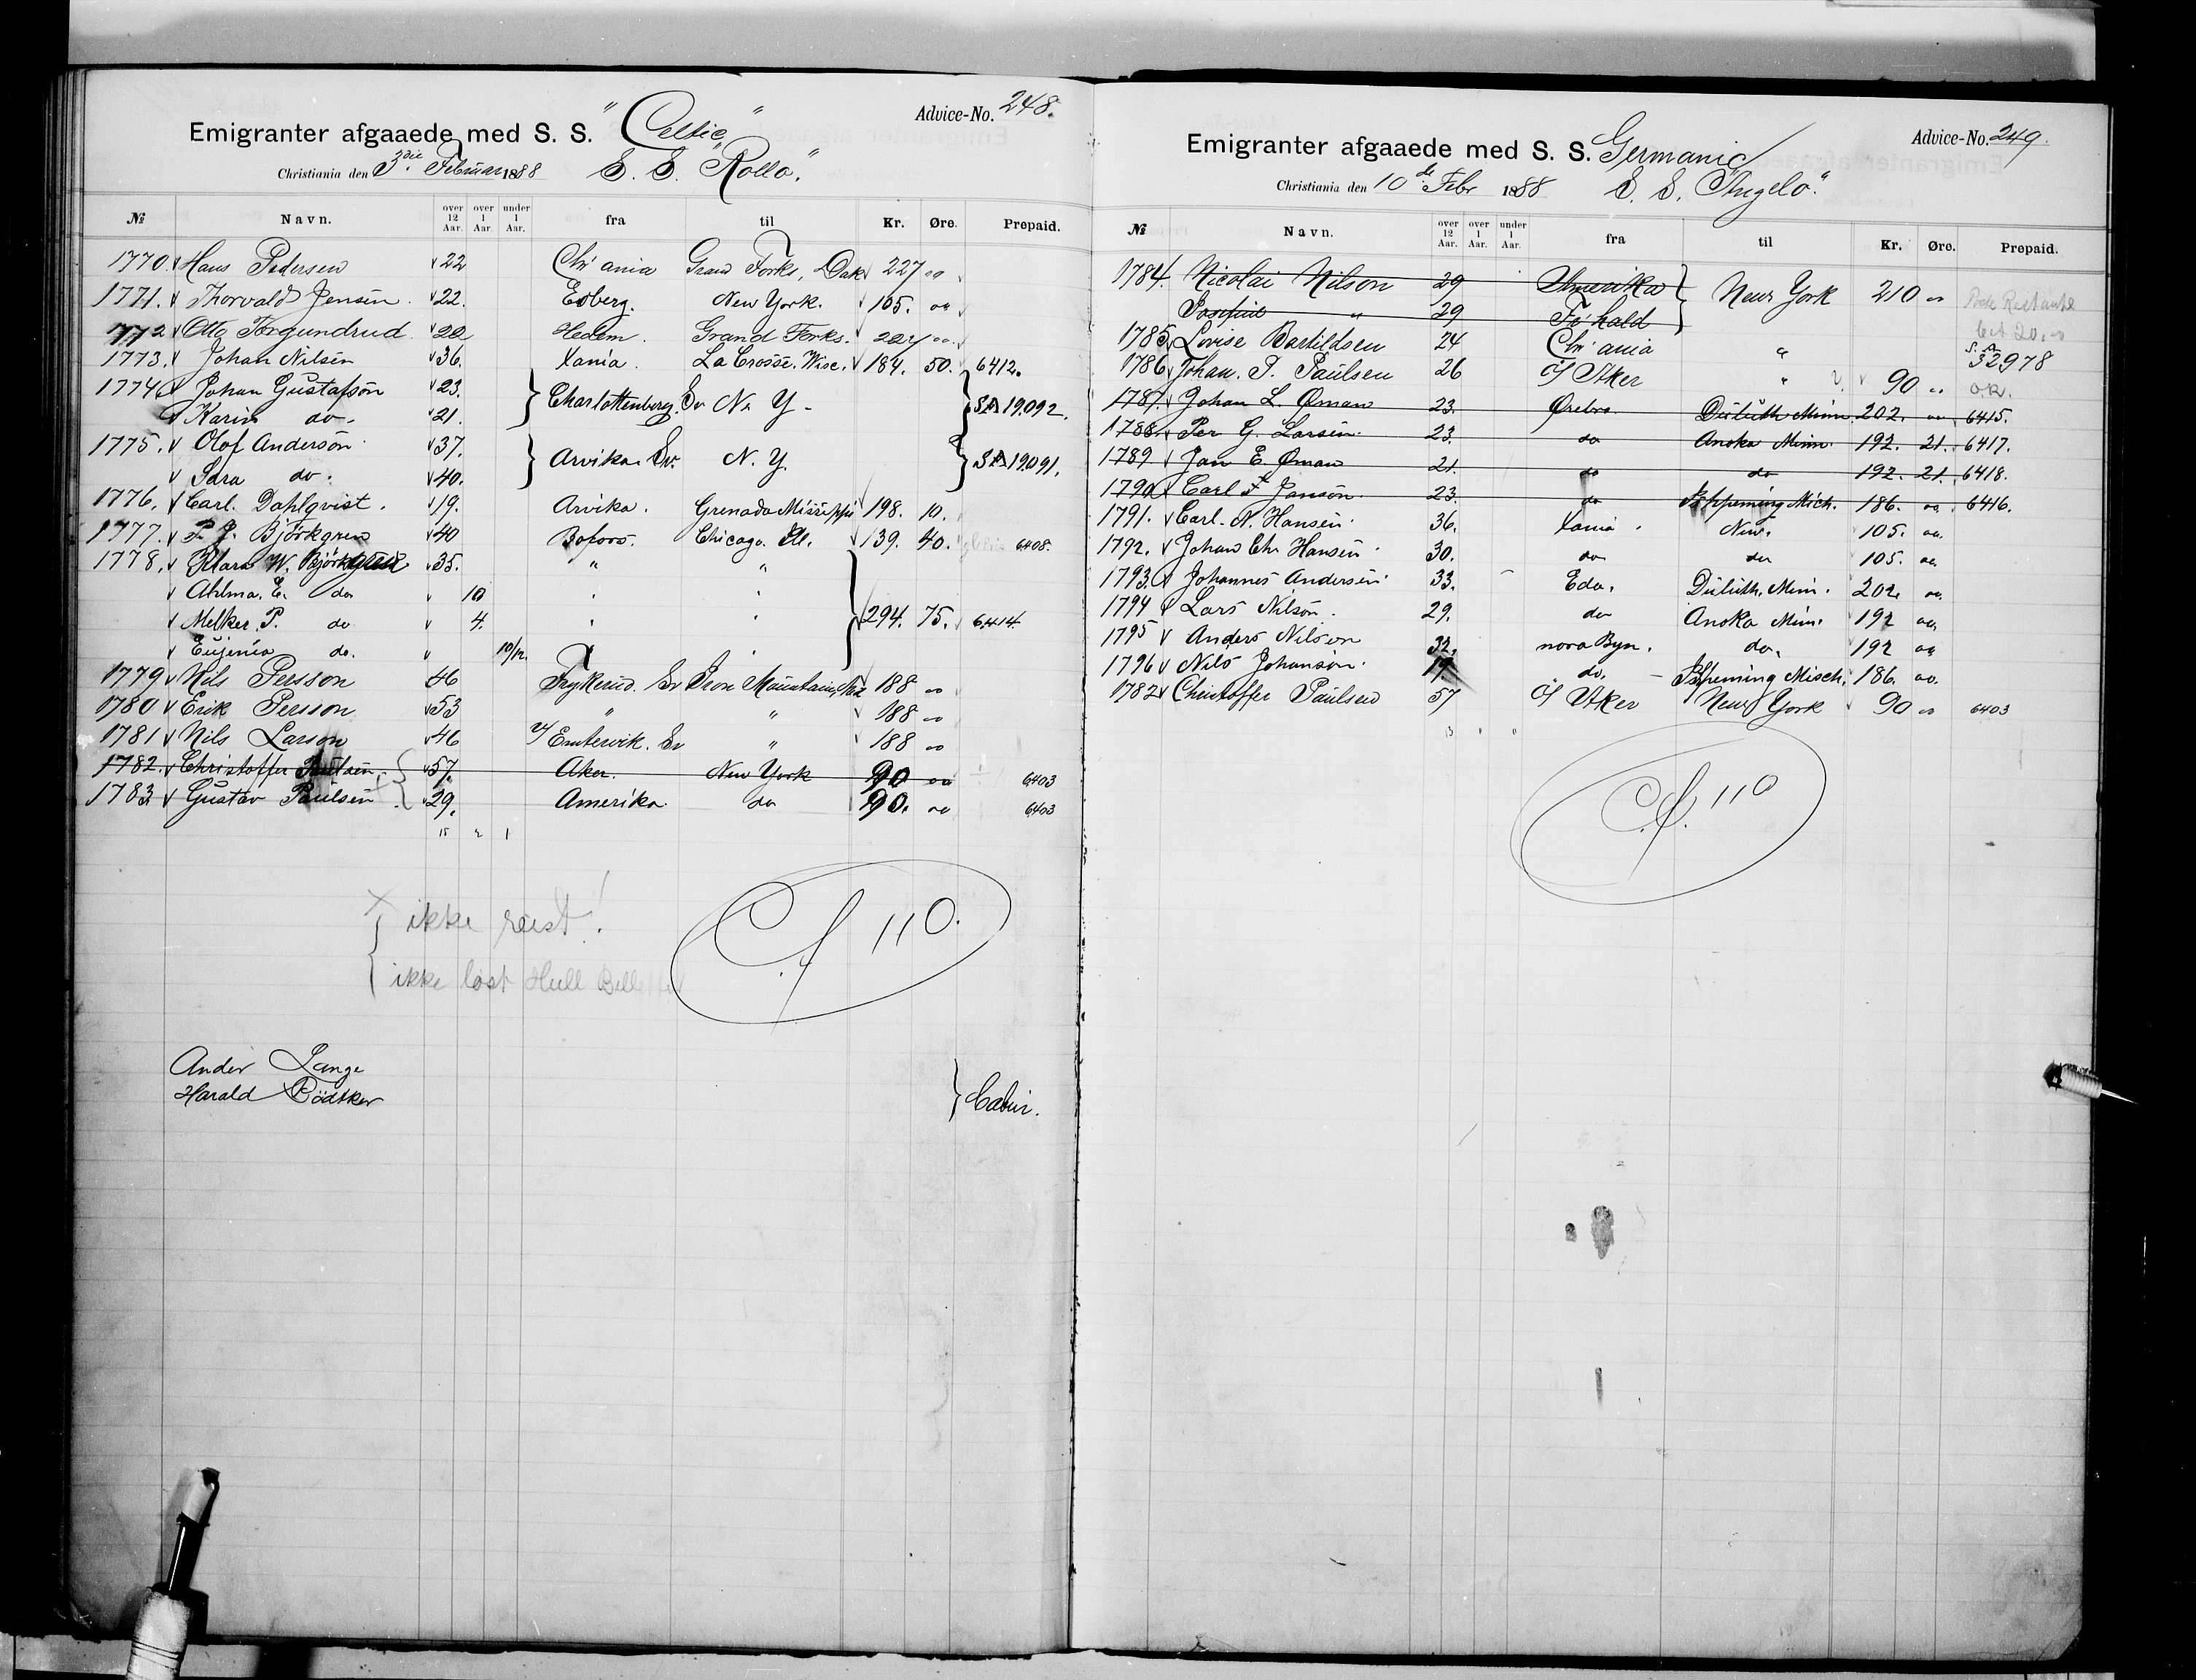 Emigranter afgaaede med S. S. "Celtic" Advice-No. 248.
Christiania den 3die Februar 1888 S. S. "Rollo."
№ Navn. over 12 Aar. over 1 Aar. under 1 Aar. fra til Kr. Øre. Prepaid.
1770. Hans Pedersen 22 Chr'ania Grand Forks, Dak 227 "
1771. Thorvald Jensen. 22. Esberg. New York. 105. oo
1772 Otto Torgundrud 22 Hedem. Grand Forks. 227 oo.
1773. Johan Nilsen 36. Xania. La Crosse. Wisc. 184. 50. 6412.
1774 Johan Gustafson 23. } Charlottenberg. Sv N. Y. } SA 19092.
Karin do. 21.
1775. Olof Anderson 37. } Arvika. Sv. N. Y. } SA 19091.
Sara do. 40.
1776. Carl. Dahlqvist. 19. Arvika. Grenada Missippi 198. 10.
1777. P. J. Björkgren 40 Bofors. Chicago. Ill. 139. 40. 6408.
1778. Klara W. Björkgren 35. " "
Ahlma. E. do 10 " "
Melker. P. do 4. " " } 294. 75. 6414.
Eujenia do. 10/12. "
1779 Nils Persson 46 Frykerud. Sv Iron Mountain, 188 oo
1780 Erik Persson 53 " " 188 oo
1781 Nils Larson 46 Emtervik. Sv " 188 oo
1782. Christoffer Paulsen. 57. Aker. New York 90 oo 6403
1783. Gustav Paulsen. 29. Amerika. do 90. oo 6403
15 2 1
x ikke reist!
{ ikke løst Hull Billet
Cf. 110.
Ander Lange
Harald Bödtker } Cabin.
Emigranter afgaaede med S. S. Germanic Advice-No. 249.
Christiania den 10de Febr 1888 S. S. "Angelo".
№ Navn. over 12 Aar. over 1 Aar. under 1 Aar. fra til Kr. Øre. Prepaid.
1784. Nicolai Nilson 29 Amerika } New York 210 " Poste Restante
Josefine " 29 Fr'hald
1785. Lovise Bartildsen 24 Chr'ania " S. A. 32978
1786 Johan. P. Paulsen 26 Aker " 90 " O.K.
1787. Johan L. Öman 23. Örebro. Duluth Minn. 202. oo 6415.
1788. Per G. Larsen. 23. do Anoka Minn. 192. 21. 6417.
1789 Jan E. Öman 21. do do 192. 21. 6418.
1790 Carl F. Janson. 23. do Ishpeming Mich. 186. oo. 6416.
1791. Carl. A. Hansen. 36. Xania. New. 105. oo.
1792. Johan Chr. Hansen. 30. do do 105. oo
1793. Johannes Andersen. 33. Eda. Duluth. Minn. 202. oo.
1794 Lars Nilson. 29. do Anoka Minn. 192 oo.
1795 Anders Nilson 32. nora Byn. do. 192 oo
1796 Nils Johanson. 19. do. Ishpeming Misch. 186. oo.
1782 Christoffer Paulsen 57 Aker New York 90 oo 6403
13 " "
Cf. 110